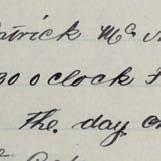 atrick Mc
go oclock
The day